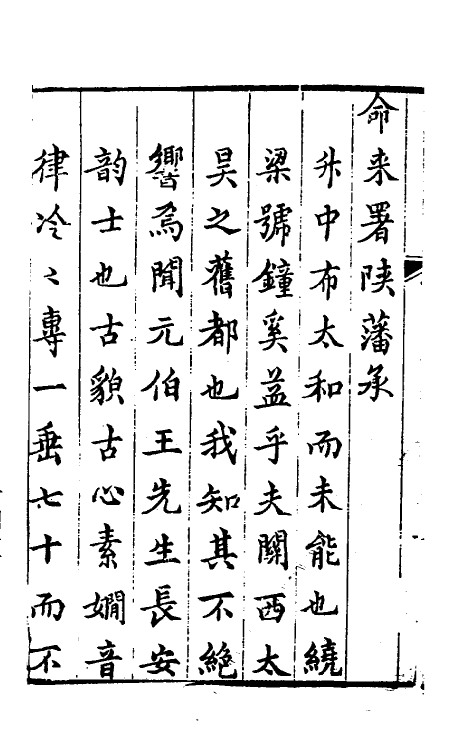 命來署陕藩承
升中布太和而未能也繞
梁號鐘奚益乎夫關西太
昊之舊都也我知其不絕
響焉聞元伯王先生長安
韵士也古貌古心素嫺音
律冷〻專一垂七十而不